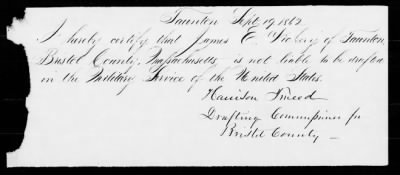 Taunton Sept 19 1862
I hereby certify that James E. Vickery of Taunton,
Bristol County, Massachusetts, is not liable to be drafted
in the Military Service of the United States.
Harrison Tweed
Drafting Commissioner for
Bristol County